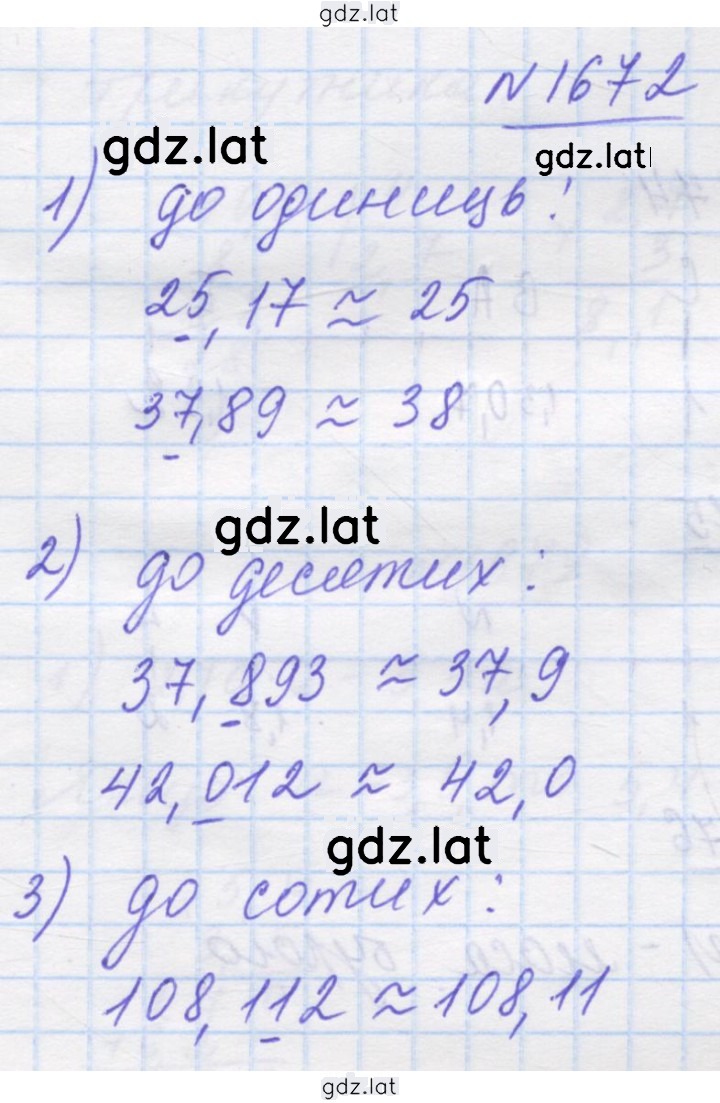 gdz.lat
N 1672
gdz.lat
gdz.lat
1) до одиниць:
25,17 ≈ 25
37,89 ≈ 38
gdz.lat
2) до десятих:
37,893 ≈ 37,9
42,012 ≈ 42,0
gdz.lat
3) до сотих:
108,112 ≈ 108,11
gdz.lat